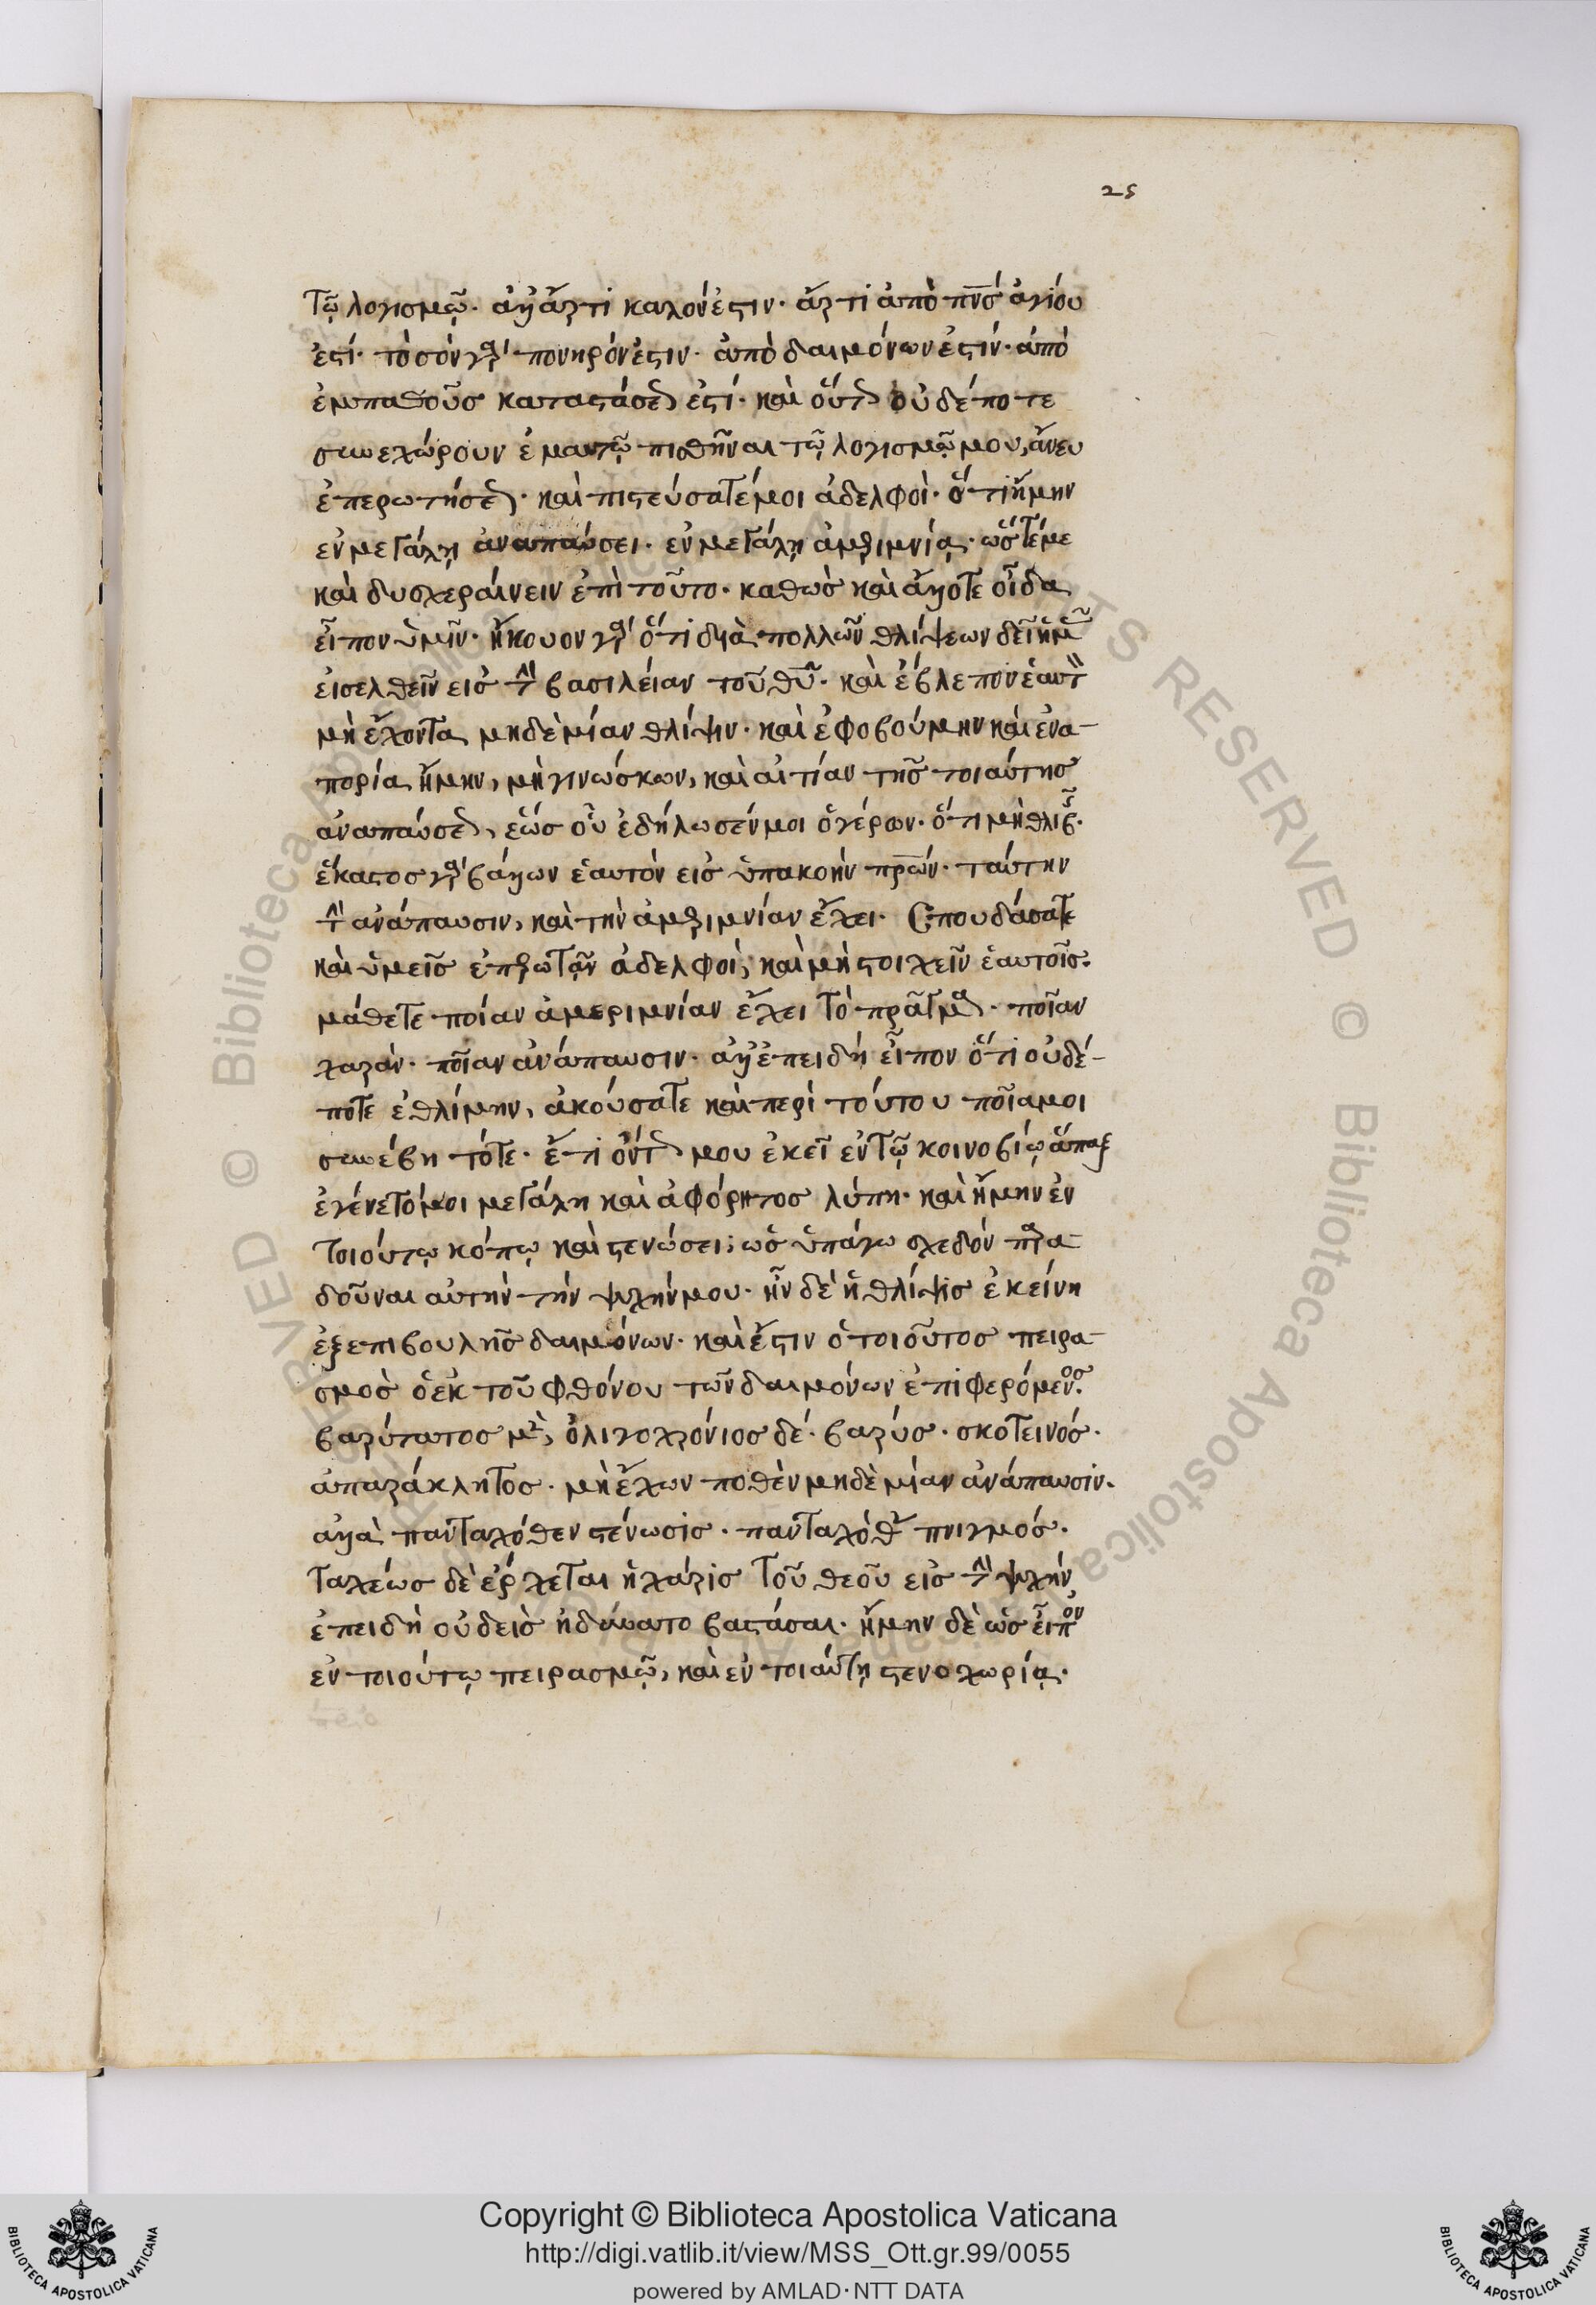 25
τῷ λογισμῷ· ἀλλ' ἄρτι καλόν ἐστιν· ἄρτι ἀπὸ πνς ἁγίου
ἐστί· τὸ σὸν γὰρ πονηρόν ἐστιν· ἀπὸ δαιμόνων ἐστίν· ἀπὸ
ἐμπαθοῦς καταστάσεως ἐστί· καὶ οὕτως οὐδέποτε
συνεχώρουν ἐμαυτῷ πιθῆναι τῷ λογισμῷ μου, ἄνευ
ἐπερωτήσεως· καὶ πιστεύσατέ μοι ἀδελφοὶ· ὅτι ἤμην
ἐν μεγάλη ἀναπαύσει· ἐν μεγάλη ἀμεριμνίᾳ· ὥστέ με
καὶ δυσχεραίνειν ἐπὶ τοῦτο· καθὼς καὶ ἄλλοτε οἶδα
εἶπον ὑμῖν· ἤκουον γὰρ ὅτι διὰ πολλῶν θλίψεων δεῖ ἡμᾶς
εἰσελθεῖν εἰς τὴν βασιλείαν τοῦ θῦ· καὶ ἔβλεπον ἑαυτὸν
μὴ ἔχοντα μηδὲ μίαν θλίψιν· καὶ ἐφοβούμην καὶ ἐν ἀ-
πορία ἤμην, μὴ γινώσκων, καὶ αἰτίαν τῆς τοιαύτης
ἀναπαύσεως, ἕως οὗ ἐδήλωσέν μοι ὁ γέρων· ὅτι μὴ θλίβου·
ἕκαστος γὰρ βάλλων ἑαυτὸν εἰς ὑπακοὴν πρων· ταύτην
τὴν ἀνάπαυσιν, καὶ τὴν ἀμεριμνίαν ἔχει· Σπουδάσατε
καὶ ὑμεῖς ἐπερωτᾶν ἀδελφοὶ, καὶ μὴ στοιχεῖν ἑαυτοῖς·
μάθετε ποίαν ἀμεριμνίαν ἔχει τὸ πρᾶγμα· ποῖαν
χαρὰν· ποῖαν ἀνάπαυσιν· ἀλλ' ἐπειδὴ εἶπον ὅτι οὐδέ-
ποτε ἐθλίμην, ἀκούσατε καὶ περὶ τούτου ποῖα μοι
συνέβη τότε· ἔτι ὄντος μου ἐκεῖ ἐν τῷ κοινοβίῳ ἅπαξ
ἐγένετό μοι μεγάλη καὶ ἀφόρητος λύπη· καὶ ἤμην ἐν
τοιούτῳ κόπῳ καὶ στενώσει, ὡς ὑπάγω σχεδὸν παρα-
δοῦναι αὐτὴν τὴν ψυχήν μου· ἦν δὲ ἡ θλίψις ἐκείνη
ἐξ ἐπιβουλῆς δαιμόνων· καὶ ἔστιν ὁ τοιοῦτος πειρα-
σμὸς ὁ ἐκ τοῦ φθόνου τῶν δαιμόνων ἐπιφερόμενος·
βαρύτατος μὲν, ὀλιγοχρόνιος δέ· βαρύς· σκοτεινός·
ἀπαράκλητος· μὴ ἔχων ποθὲν μηδὲ μίαν ἀνάπαυσιν·
ἀλλὰ πανταχόθεν στένωσις· πανταχόθεν πνιγμός·
ταχέως δὲ ἔρχεται ἡ χάρις τοῦ θεοῦ εἰς τὴν ψυχήν
ἐπειδὴ οὐδεὶς ἠδύνατο βαστάσαι· ἤμην δὲ ὡς εἶπον
ἐν τοιούτῳ πειρασμῷ, καὶ ἐν τοιαύτῃ στενοχωρίᾳ·
Copyright © Biblioteca Apostolica Vaticana
http://digi.vatlib.it/view/MSS_Ott.gr.99/0055
powered by AMLAD·NTT DATA